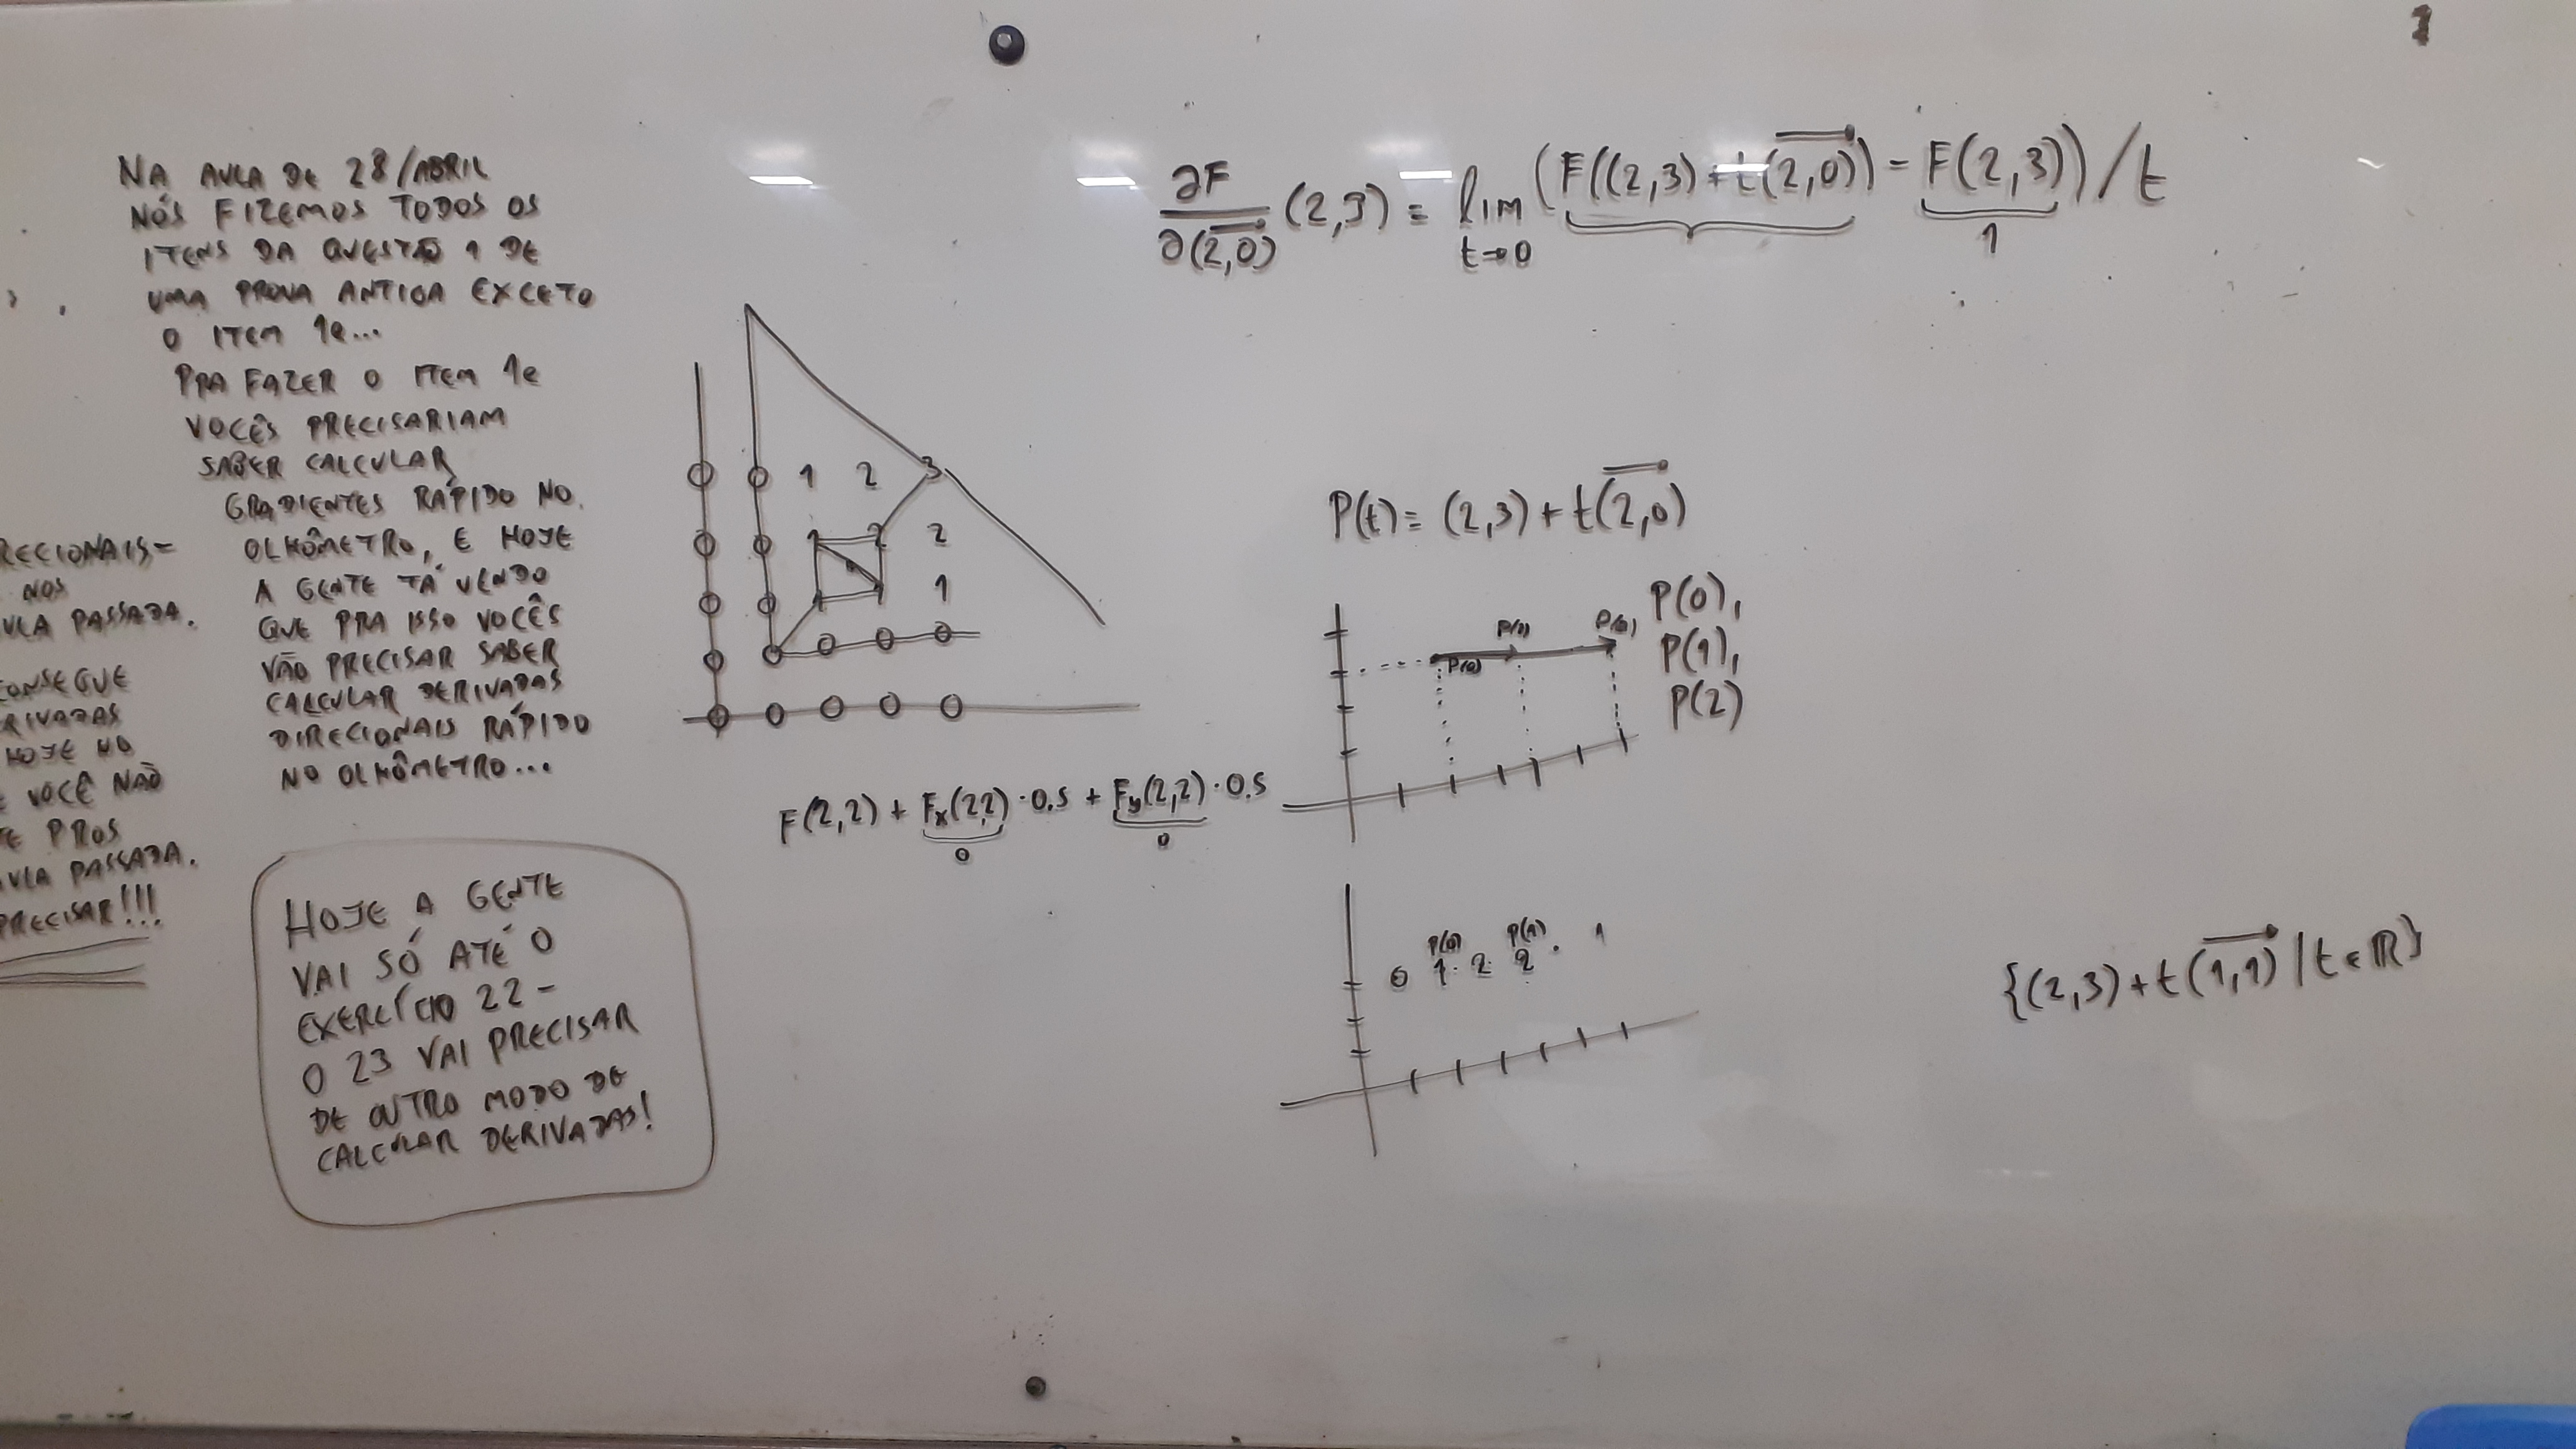 RECIONAIS-
NOS
AULA PASSADA.
CONSEGUE
RIVADAS
HOJE NO
E VOCÊ NÃO
TE PROS
AULA PASSADA.
PRECISAR!!!
NA AULA DE 28/ABRIL
NÓS FIZEMOS TODOS OS
ITENS DA QUESTÃO 1 DE
UMA PROVA ANTIGA EXCETO
O ITEM 1e...
PRA FAZER O ITEM 1e
VOCÊS PRECISARIAM
SABER CALCULAR
GRADIENTES RÁPIDO NO
OLHÔMETRO, E HOJE
A GENTE TÁ VENDO
QUE PRA ISSO VOCÊS
VÃO PRECISAR SABER
CALCULAR DERIVADAS
DIRECIONAIS RÁPIDO
NO OLHÔMETRO...
HOJE A GENTE
VAI SÓ ATÉ O
EXERCÍCIO 22 -
O 23 VAI PRECISAR
DE OUTRO MODO DE
CALCULAR DERIVADAS!
0 0 1 2 3
0 0 1 2 2
0 0 1 1 1
0 0 0 0 0
0 0 0 0 0
F(2,2) + Fx(2,2) · 0.5 + Fy(2,2) · 0.5
0 0
∂F/∂(2,0)→ (2,3) = lim t→0 (F((2,3) + t(2,0)→) - F(2,3))/t
1
P(t) = (2,3) + t(2,0)→
P(0),
P(1),
P(2)
P(0) P(1) P(2)
P(0) P(1)
0 1 2 2 1
{(2,3) + t(1,1)→ | t ∈ ℝ}